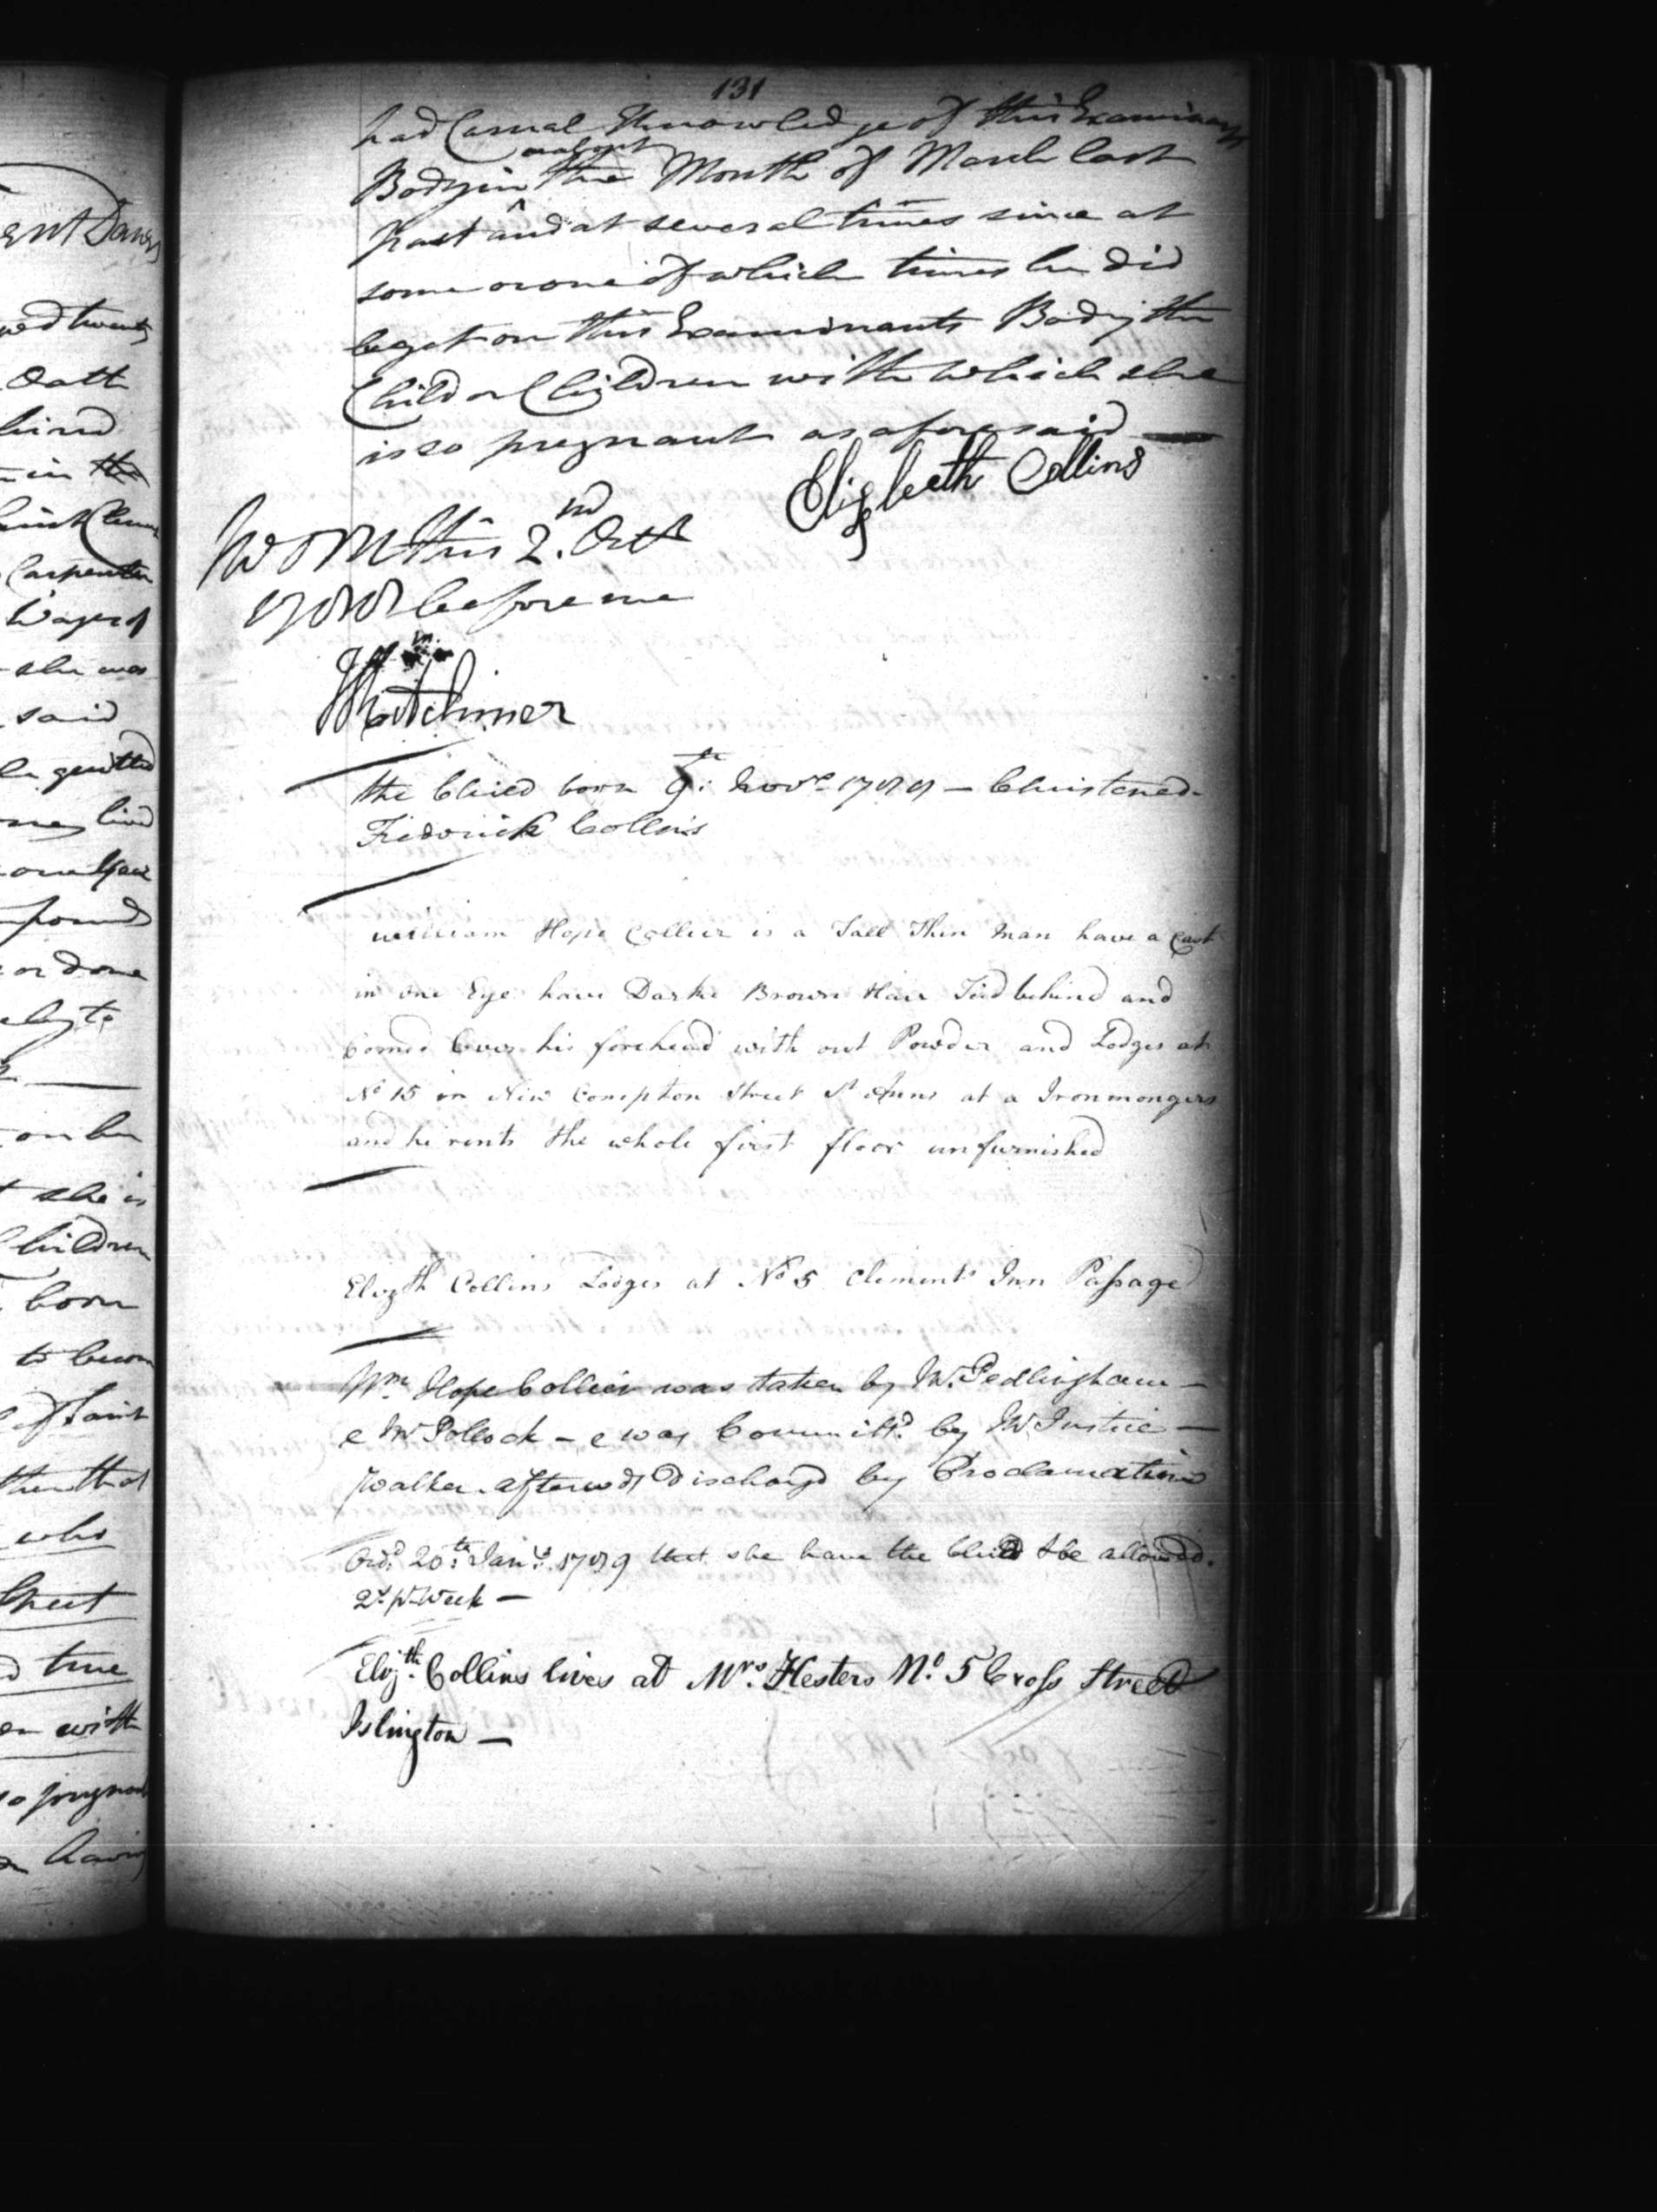 131
had Carnal Knowledge of this Examinants
in about
Body in the Month of March last
past and at several times since at
some or one of which times he did
beget on this Examinants Body the
Child or Children with which she
is so pregnant as aforesaid
Elizbeth Collins
Sworn this 2.nd Octr
1788 before me
Wm. Mitchiner
the Child born 9.th Novr 1788 — Christened
Fredorick Collins
William Hope Collier is a Tall Thin Man have a Cast
in one Eye have Darke Brown Hair Tied behind and
Comed over his forehead with out Powder and Lodges at
No 15 in New Compton Street St Anns at a Ironmongers
and he rents the whole first floor unfurnished
Elizth Collins Lodges at No 5 Clements Inn Passage
Wm. Hope Collier was taken by Mr. Pedlingham —
& Mr Pollock — & was Committd. by Mr Justice —
Walker. afterwds dischargd by Proclamation
Ordd. 20.th Jany. 1789 that she have the Child & be allowed.
2s. pr. Week —
Eliz.th Collins lives at Mrs. Hesters No. 5 Cross Street
Islington —
ent Danes
ged twenty
Oath
hired
in the
Saint Clement
Carpenter
Wages of
she was
said
he quitted
lived
one Year
pounds
or done
on her
she is
Children
born
of Saint
then that
who
Street
true
with
so pregnant
having